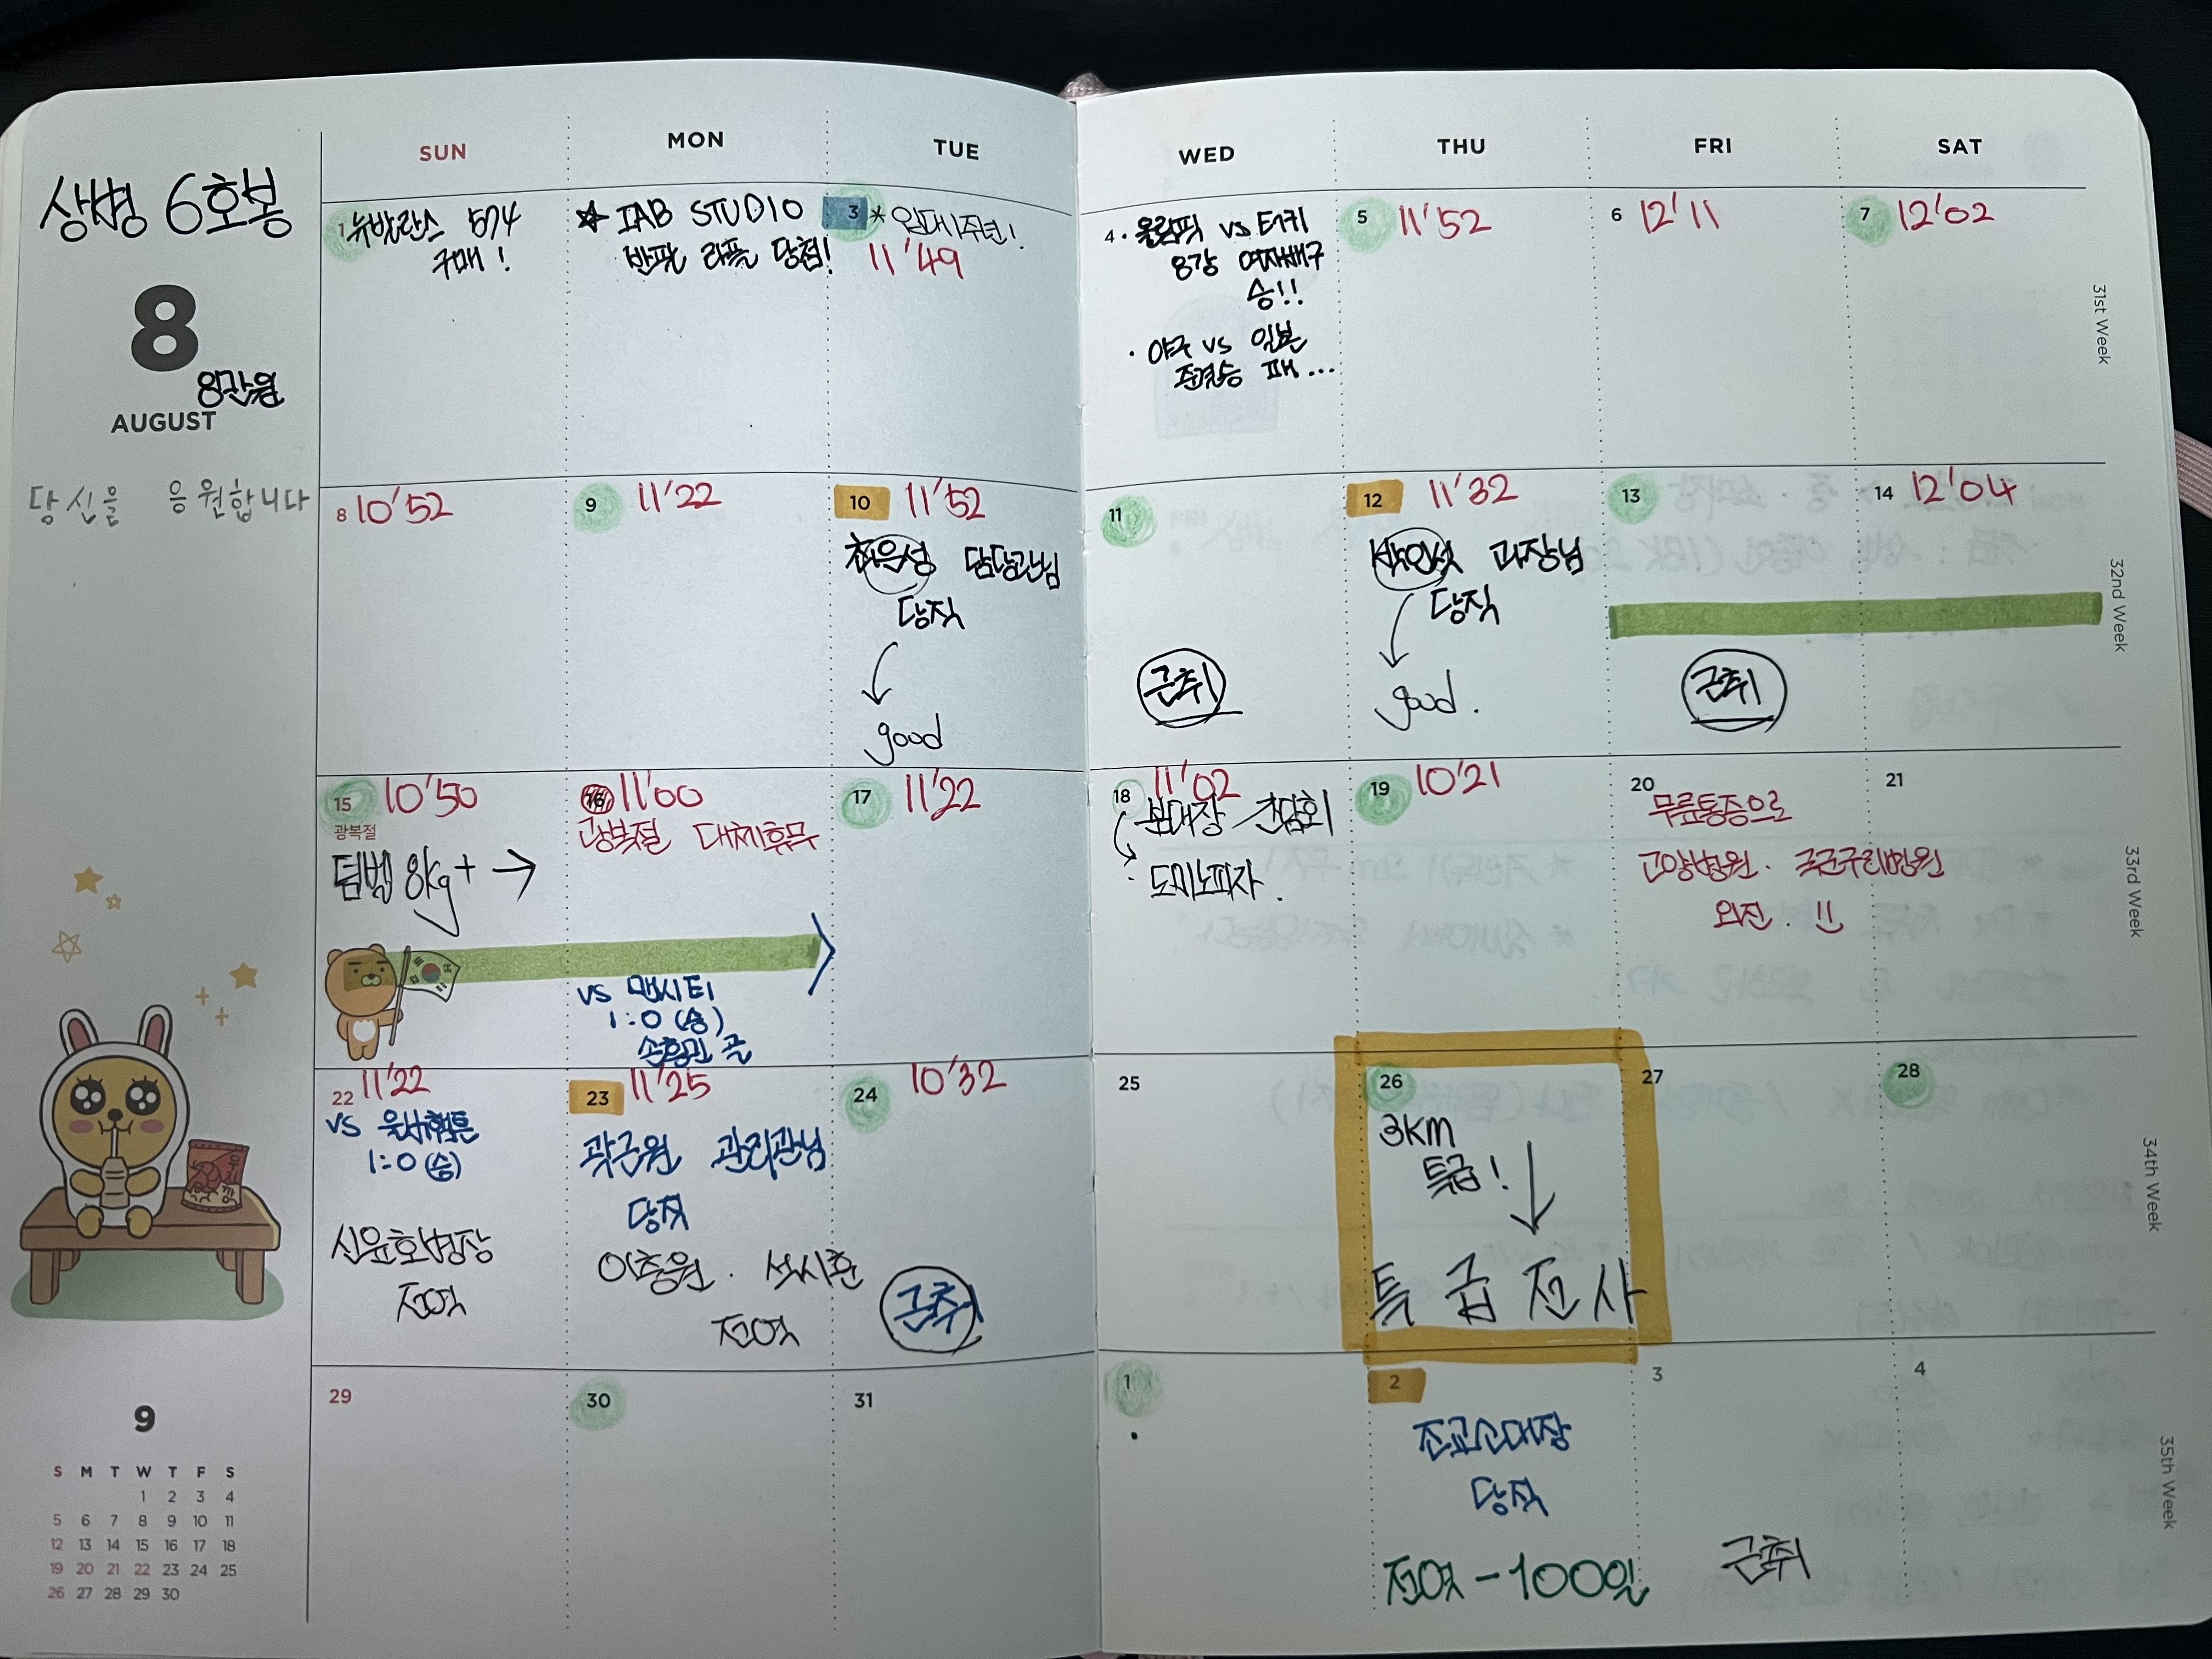 상병 6호봉
8
8만원
AUGUST
당신을 응원합니다
SUN MON TUE WED THU FRI SAT
1 뉴발란스 574
구매!
☆ IAB STUDIO
반팔 라플 당첨!
3 * 입대1주년!
11'49
4 · 올림픽 vs 터키
8강 여자배구
승!!
· 야구 vs 일본
준결승 패...
5 11'52
6 12'11
7 12'02
31st Week
8 10'52
9 11'22
10 11'52
최은성 담당관님
당직
good
11
근취
12 11'32
박인석 과장님
당직
good.
13
근취
14 12'04
32nd Week
15 10'50
광복절
덤벨 8kg+ →
16 11'00
광복절 대체휴무
vs 맨시티
1:0 (승)
손흥민 골
17 11'22
18 11'02
본대장 간담회
· 도미노피자.
19 10'21
20
무릎통증으로
고양병원. 국군구리병원
외진. !!
21
33rd Week
22 11'22
vs 울버햄튼
1:0 (승)
신윤호병장
전역
23 11'25
곽근원 관리관님
당직
이충원. 석시훈
전역
24 10'32
근취
25
26
3km
특급!
특급전사
27
28
34th Week
29
30
31
1
2
조교소대장
당직
전역-100일
3
근취
4
35th Week
9
S M T W T F S
1 2 3 4
5 6 7 8 9 10 11
12 13 14 15 16 17 18
19 20 21 22 23 24 25
26 27 28 29 30